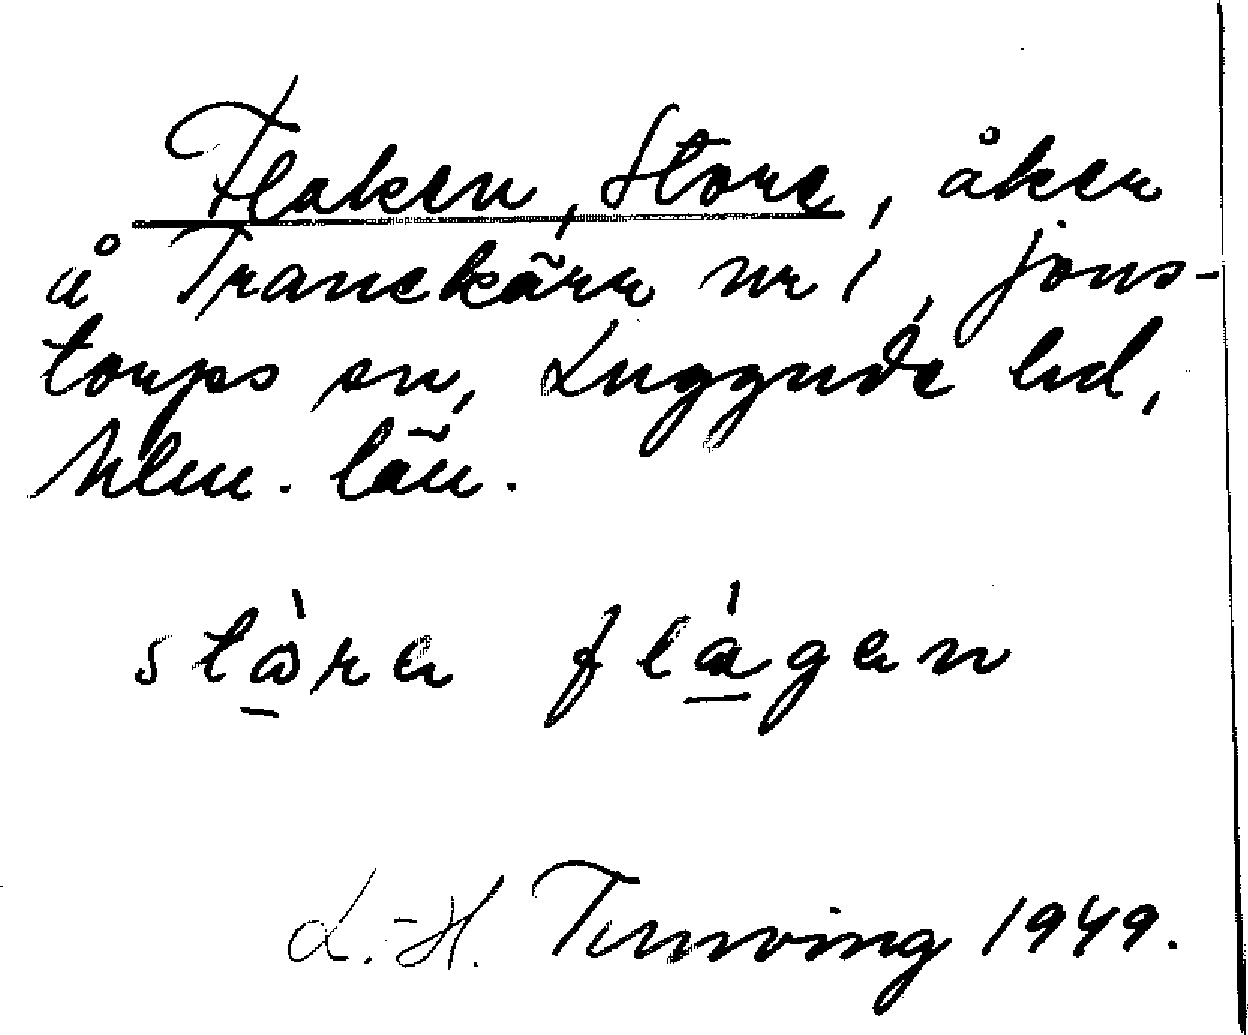 Flaken, Store, åker
å Tranekärr nr 1, Jons-
torps sn, Luggude hd,
Mlm. län.
stòra flágen
L.-H. Ternving 1949.